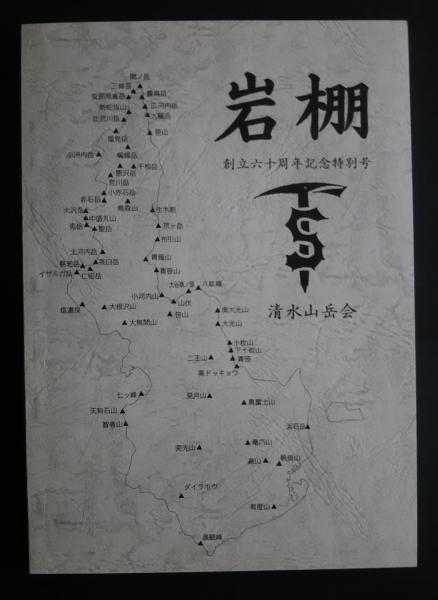 岩棚
創立六十周年記念特別号
清水山岳会
間ノ岳
三峰岳
農鳥岳
安部荒倉岳
広河内岳
新蛇抜山
大籠岳
北荒川岳
笹山
塩見岳
小河内岳
蝙蝠岳
千枚岳
悪沢岳
荒川岳
小赤石岳
赤石岳
鳥森山
生木割
大沢岳
中盛丸山
兎岳
聖岳
笊ヶ岳
布引山
上河内岳
青薙山
茶臼岳
イザルガ岳
仁田岳
青笹山
大谷嶺
八紘嶺
小河内山
山伏
信濃俣
大根沢山
笹山
奥大光山
大無間山
大光山
十枚山
下十枚山
二王山
青笹
高ドッキョウ
七ッ峰
見月山
真富士山
天狗石山
智者山
浜石岳
竜爪山
突先山
高山
帆掛山
ダイラボウ
有度山
満観峰